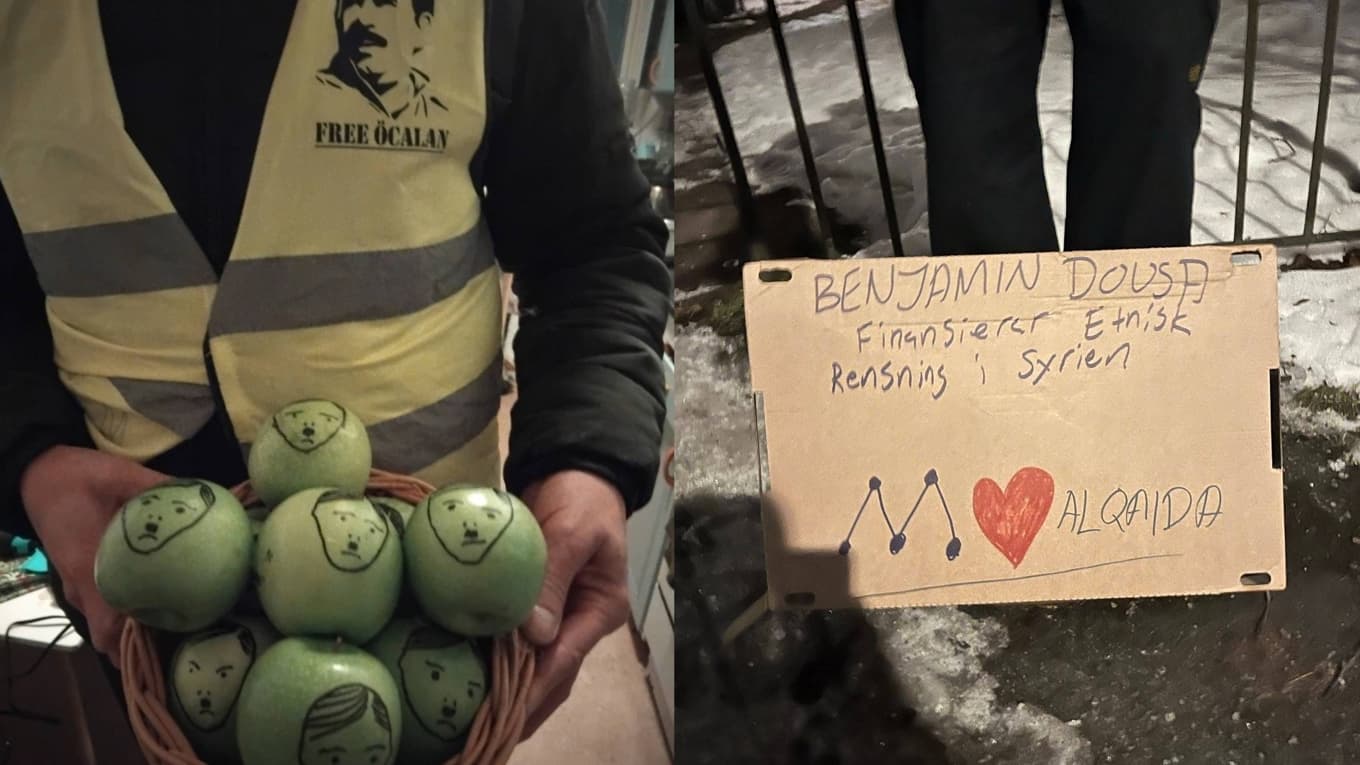 FREE ÖCALAN
BENJAMIN DOUSA
Finansierar Etnisk
Rensning i Syrien
M ❤ ALQAIDA